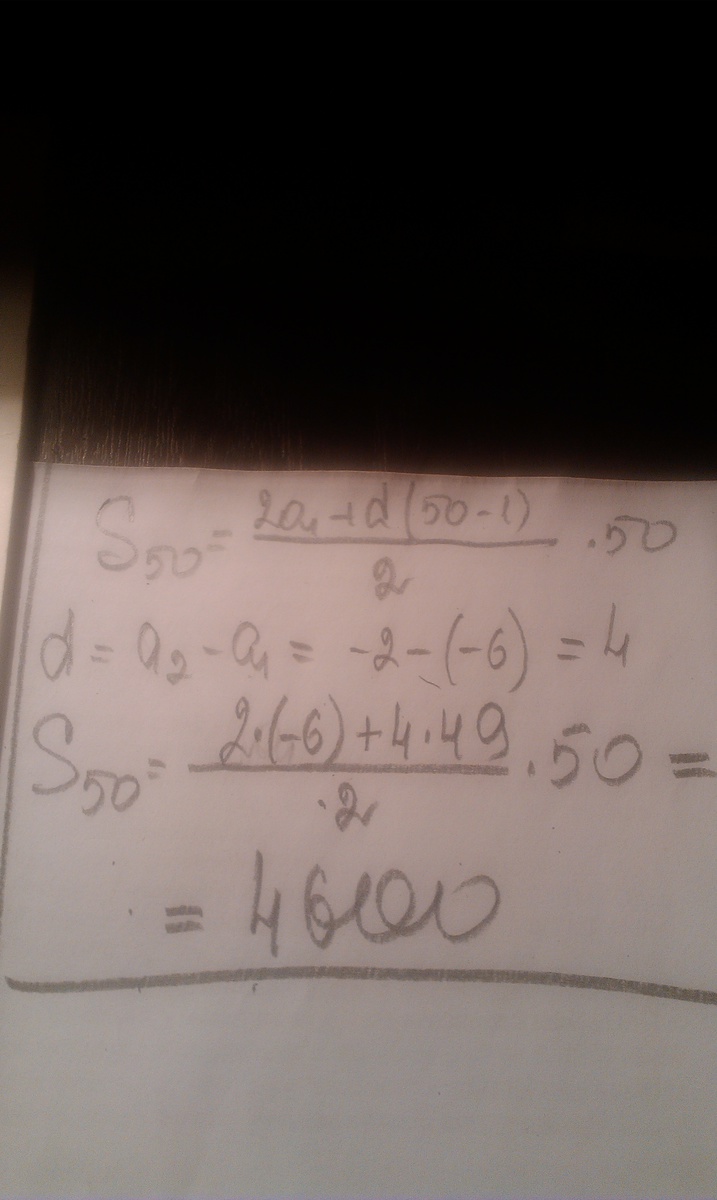 S₅₀ = (2a₁ + d(50-1))/2 · 50
d = a₂ - a₁ = -2 - (-6) = 4
S₅₀ = (2·(-6) + 4·49)/2 · 50 =
= 4600